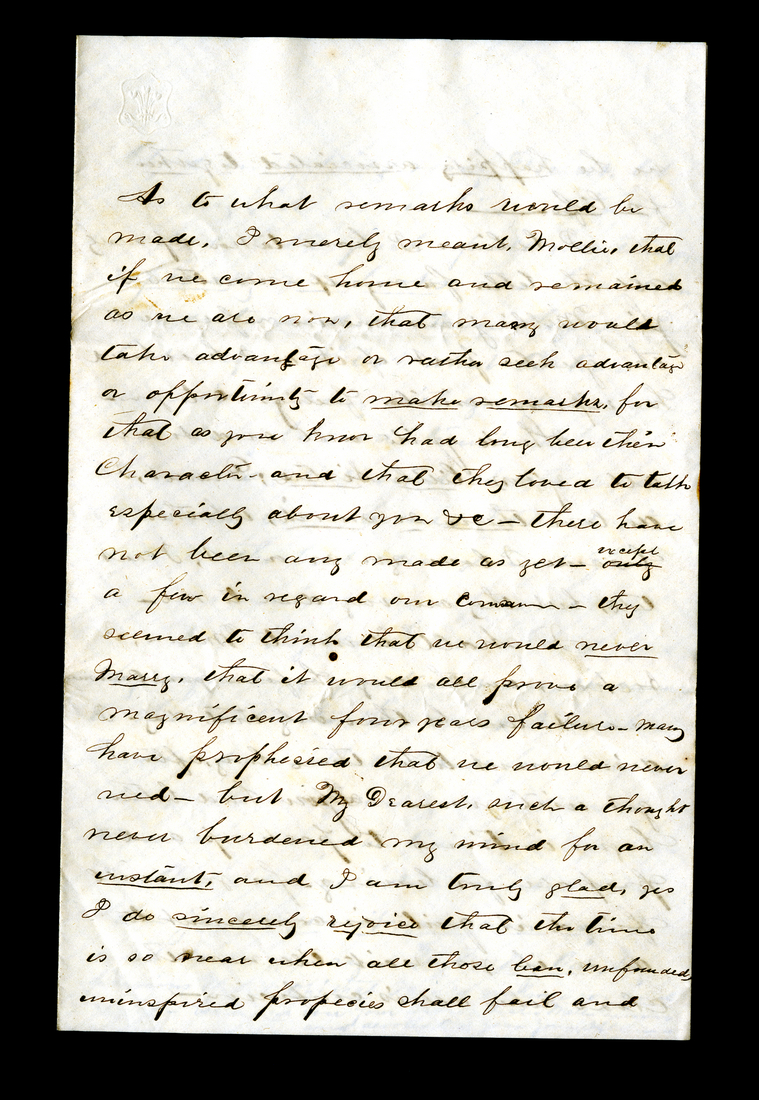 As to what remarks would be
made, I merely meant, Mollie, that
if we come home and remained
as we are now, that many would
take advantage or rather seek advantage
or opportunity to make remarks, for
that as you know had long been their
Character - and that they loved to talk
especially about you &c - there have
not been any made as yet - except only
a few in regard our - they
seemed to think that we would never
Marry, that it would all prove a
magnificent four years failure - many
have prophesied that we would never
wed - but My Dearest, such a thought
never burdened my mind for an
instant, and I am truly glad, yes
I do sincerely rejoice that the time
is so near when all those, unfounded,
uninspired propecies shall fail and